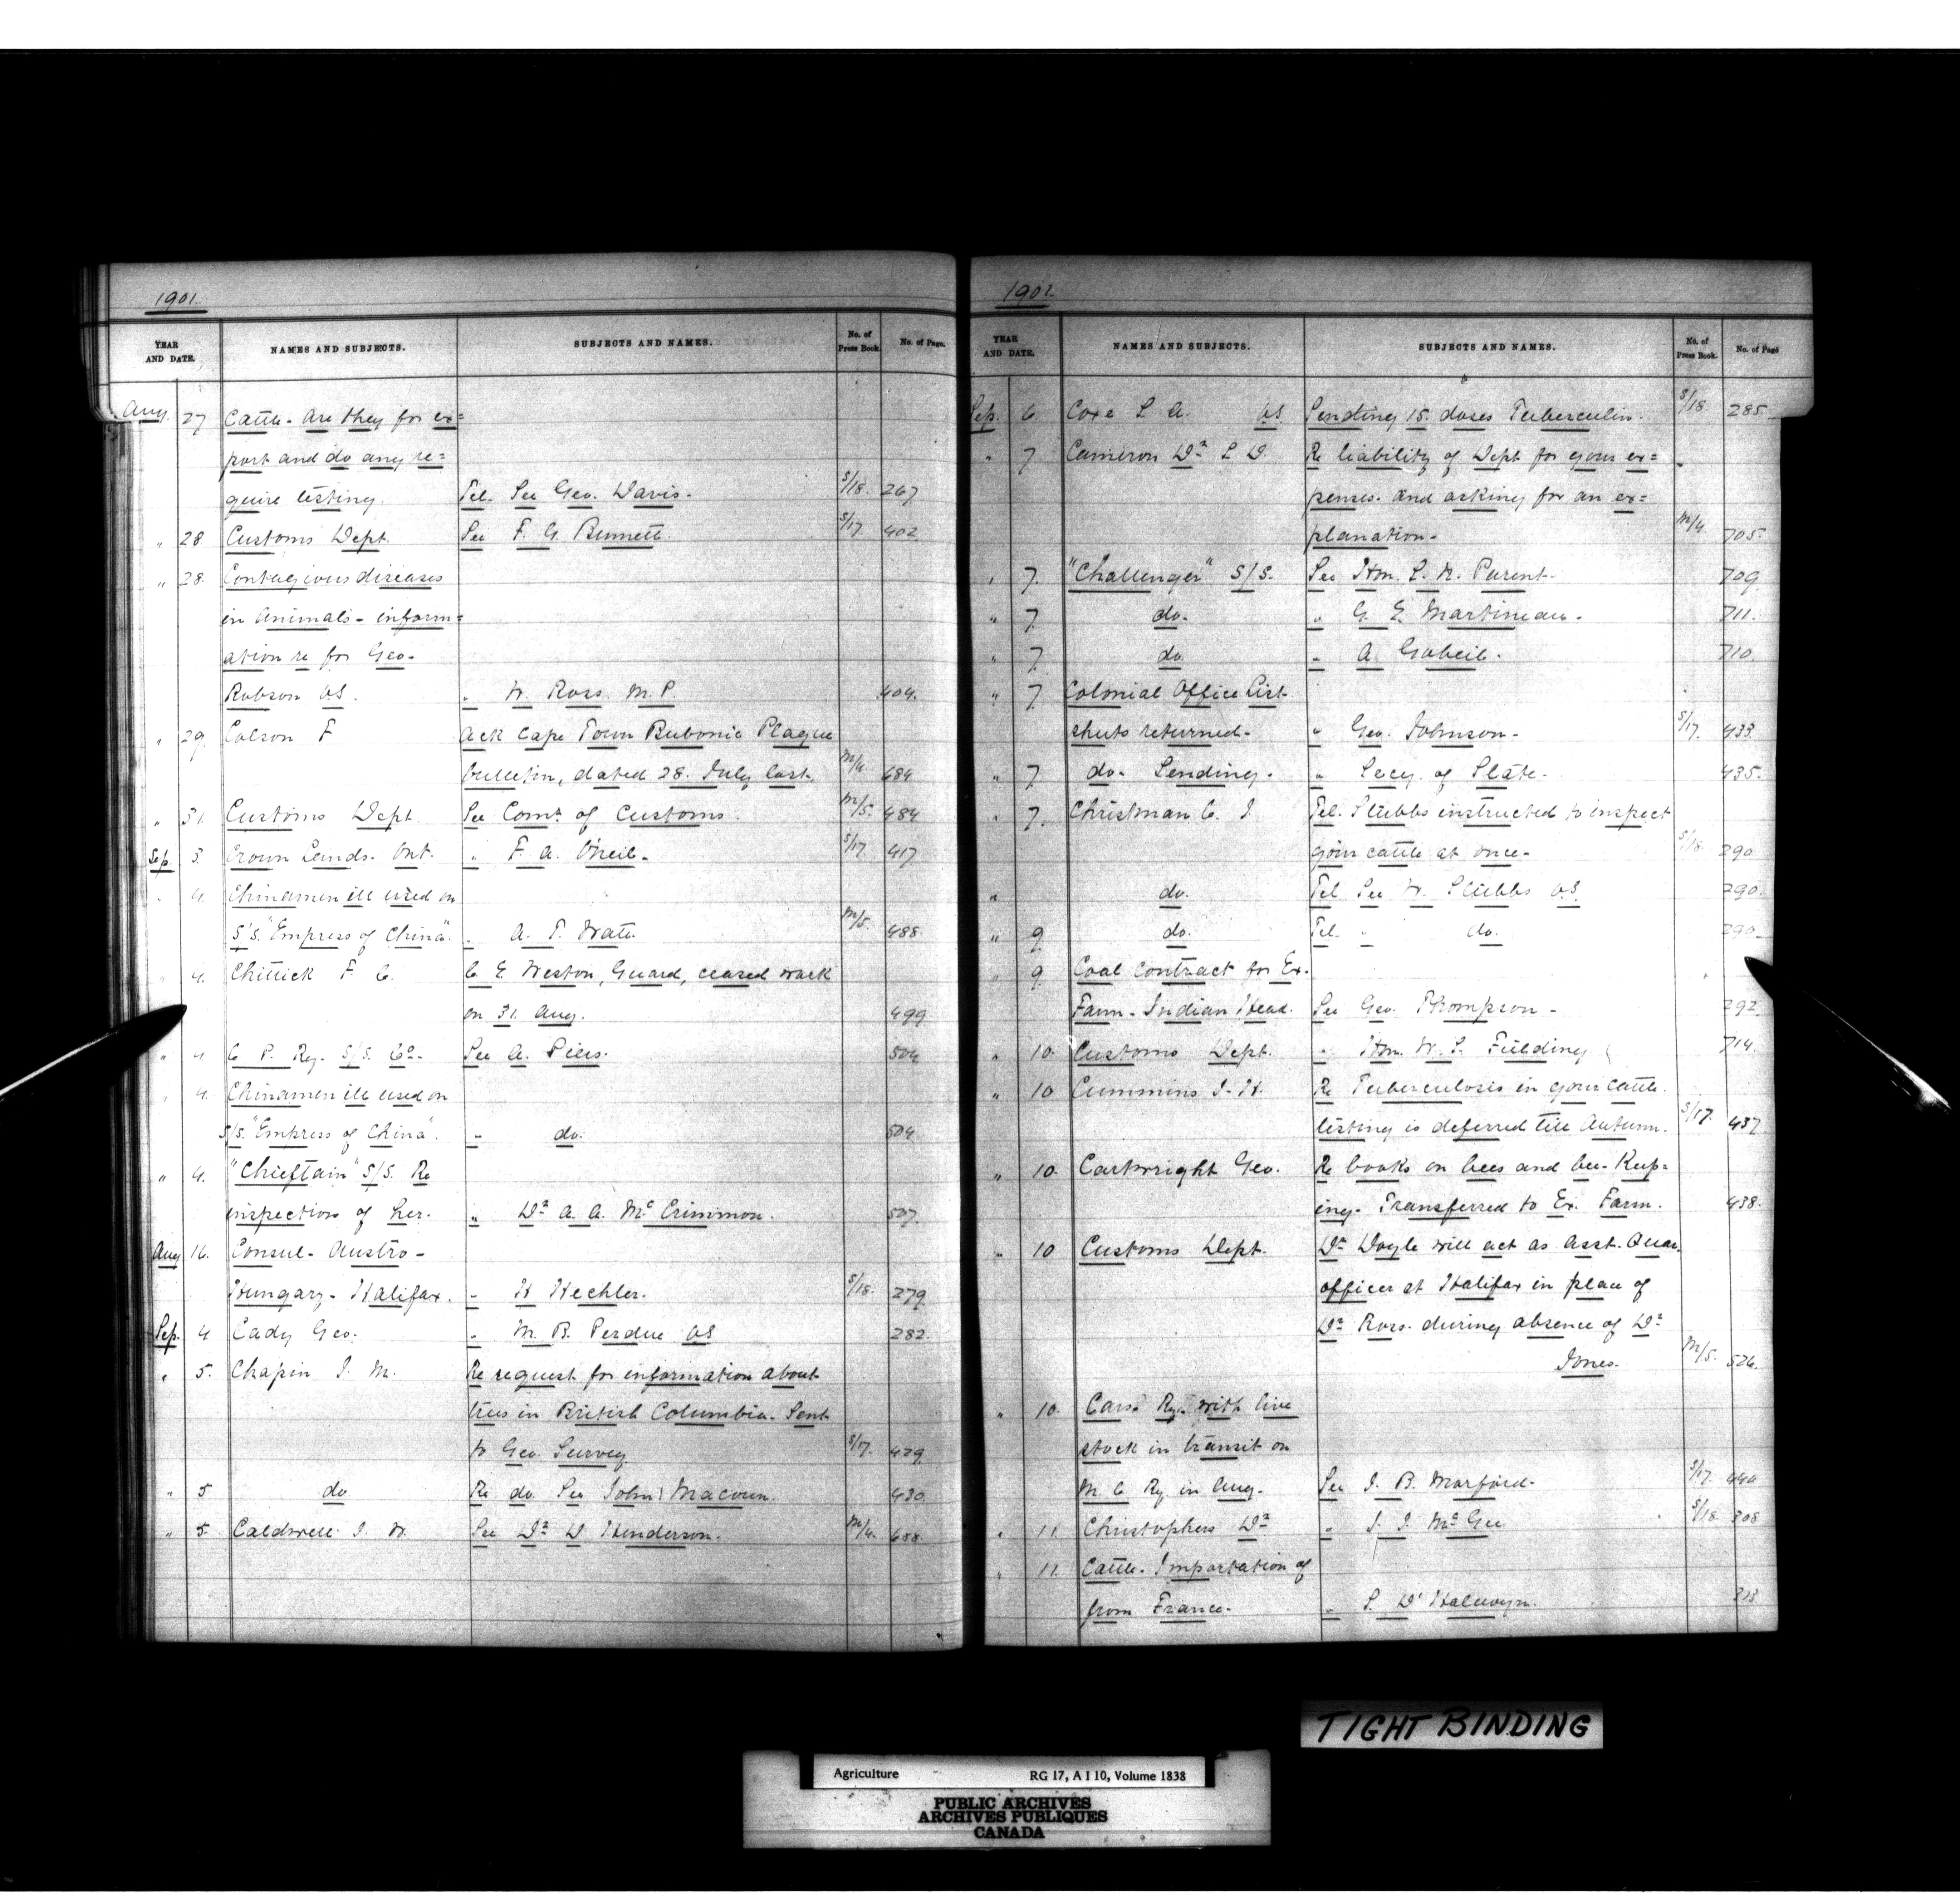 1901.
YEAR AND DATE. NAMES AND SUBJECTS. SUBJECTS AND NAMES. No. of Press Book. No. of Page.
Aug. 27 Cattle - are they for ex=
port and do any re=
quire testing. Tel. See Geo. Davis. S/18. 267
" 28. Customs Dept. See F. G. Bennett. S/17 402
" 28. Contagious diseases
in animals - inform=
ation re for Geo.
Robson VS. " W. Ross. M.P. 404.
" 29. Colson F Ack Cape Town Bubonic Plague
bulletin, dated 28. July last. M/4. 684
" 31. Customs Dept See Comr of Customs. M/5. 484
Sep. 3. Crown Lands. Ont. " F. A. O'Neil. S/17. 417
" 4. Chinamen ill used on
S/S. "Empress of China". " A. T. Watt. M/5. 488.
" 4. Chittick F. C. C E Weston, Guard, ceased work
on 31. Aug. 499
" 4 C. P. Ry. S/S. Co. See A. Piers. 504
" 4. Chinamen ill used on
S/S. "Empress of China". " do. 504
" 4. "Chieftain" S/S. Re
inspection of her. " Dr A. A. McCrimmon. 507.
Aug 16. Consul - Austro -
Hungary - Halifax. " H Hechler. S/18. 279.
Sep. 4 Cady Geo. " M. B. Perdue VS 282.
" 5. Chapin J. M. Re request for information about
trees in British Columbia. Sent
to Geo. Survey S/17. 429.
" 5 do Re do. See John Macoun. 430.
" 5. Caldwell J. W. See Dr D Henderson. M/4. 688.
1901.
YEAR AND DATE. NAMES AND SUBJECTS. SUBJECTS AND NAMES. No. of Press Book. No. of Page
Sep. 6. Coxe L A. VS. Sending 15. doses Tuberculin. S/18. 285.
" 7 Cameron Dr L D. Re liability of Dept for your ex=
penses. and asking for an ex=
planation - M/4. 705.
" 7. "Challenger" S/S. See Hon. S. N. Parent. 709
" 7. do. " G E Martineau. 711.
" 7. do " A Gobeil. 710.
" 7 Colonial Office List
sheets returned. " Geo. Johnson. S/17. 433.
" 7 do. Sending. " Secy. of State. 435.
" 7. Christman C. J. Tel. Stubbs instructed to inspect
your cattle at once. S/18. 290
" do. Tel See W. Stubbs VS. 290.
" 9 do. Tel. " do. 290.
" 9 Coal contract for Ex.
Farm - Indian Head. See Geo. Thompson - 292.
" 10. Customs Dept. " Hon. W. S. Fielding 714.
" 10 Cummins J. H. Re Tuberculosis in your cattle.
testing is deferred till Autumn. S/17. 437
" 10. Cartwright Geo. Re books on bees and bee-keep=
ing. Transferred to Ex. Farm. 438.
" 10 Customs Dept. Dr Doyle will act as Asst. Quar.
officer at Halifax in place of
Dr Ross. during absence of Dr
Jones. M/5. 526.
" 10. Cars. Ry. with live
stock in transit on
M. C Ry in Aug. See J. B. Morford. S/17. 440
" 11. Christophers Dr " J. J. McGee S/18. 308
" 11. Cattle. Importation of
from France. " S. D' Halewyn.
TIGHT BINDING
Agriculture RG 17, A I 10, Volume 1838
PUBLIC ARCHIVES
ARCHIVES PUBLIQUES
CANADA